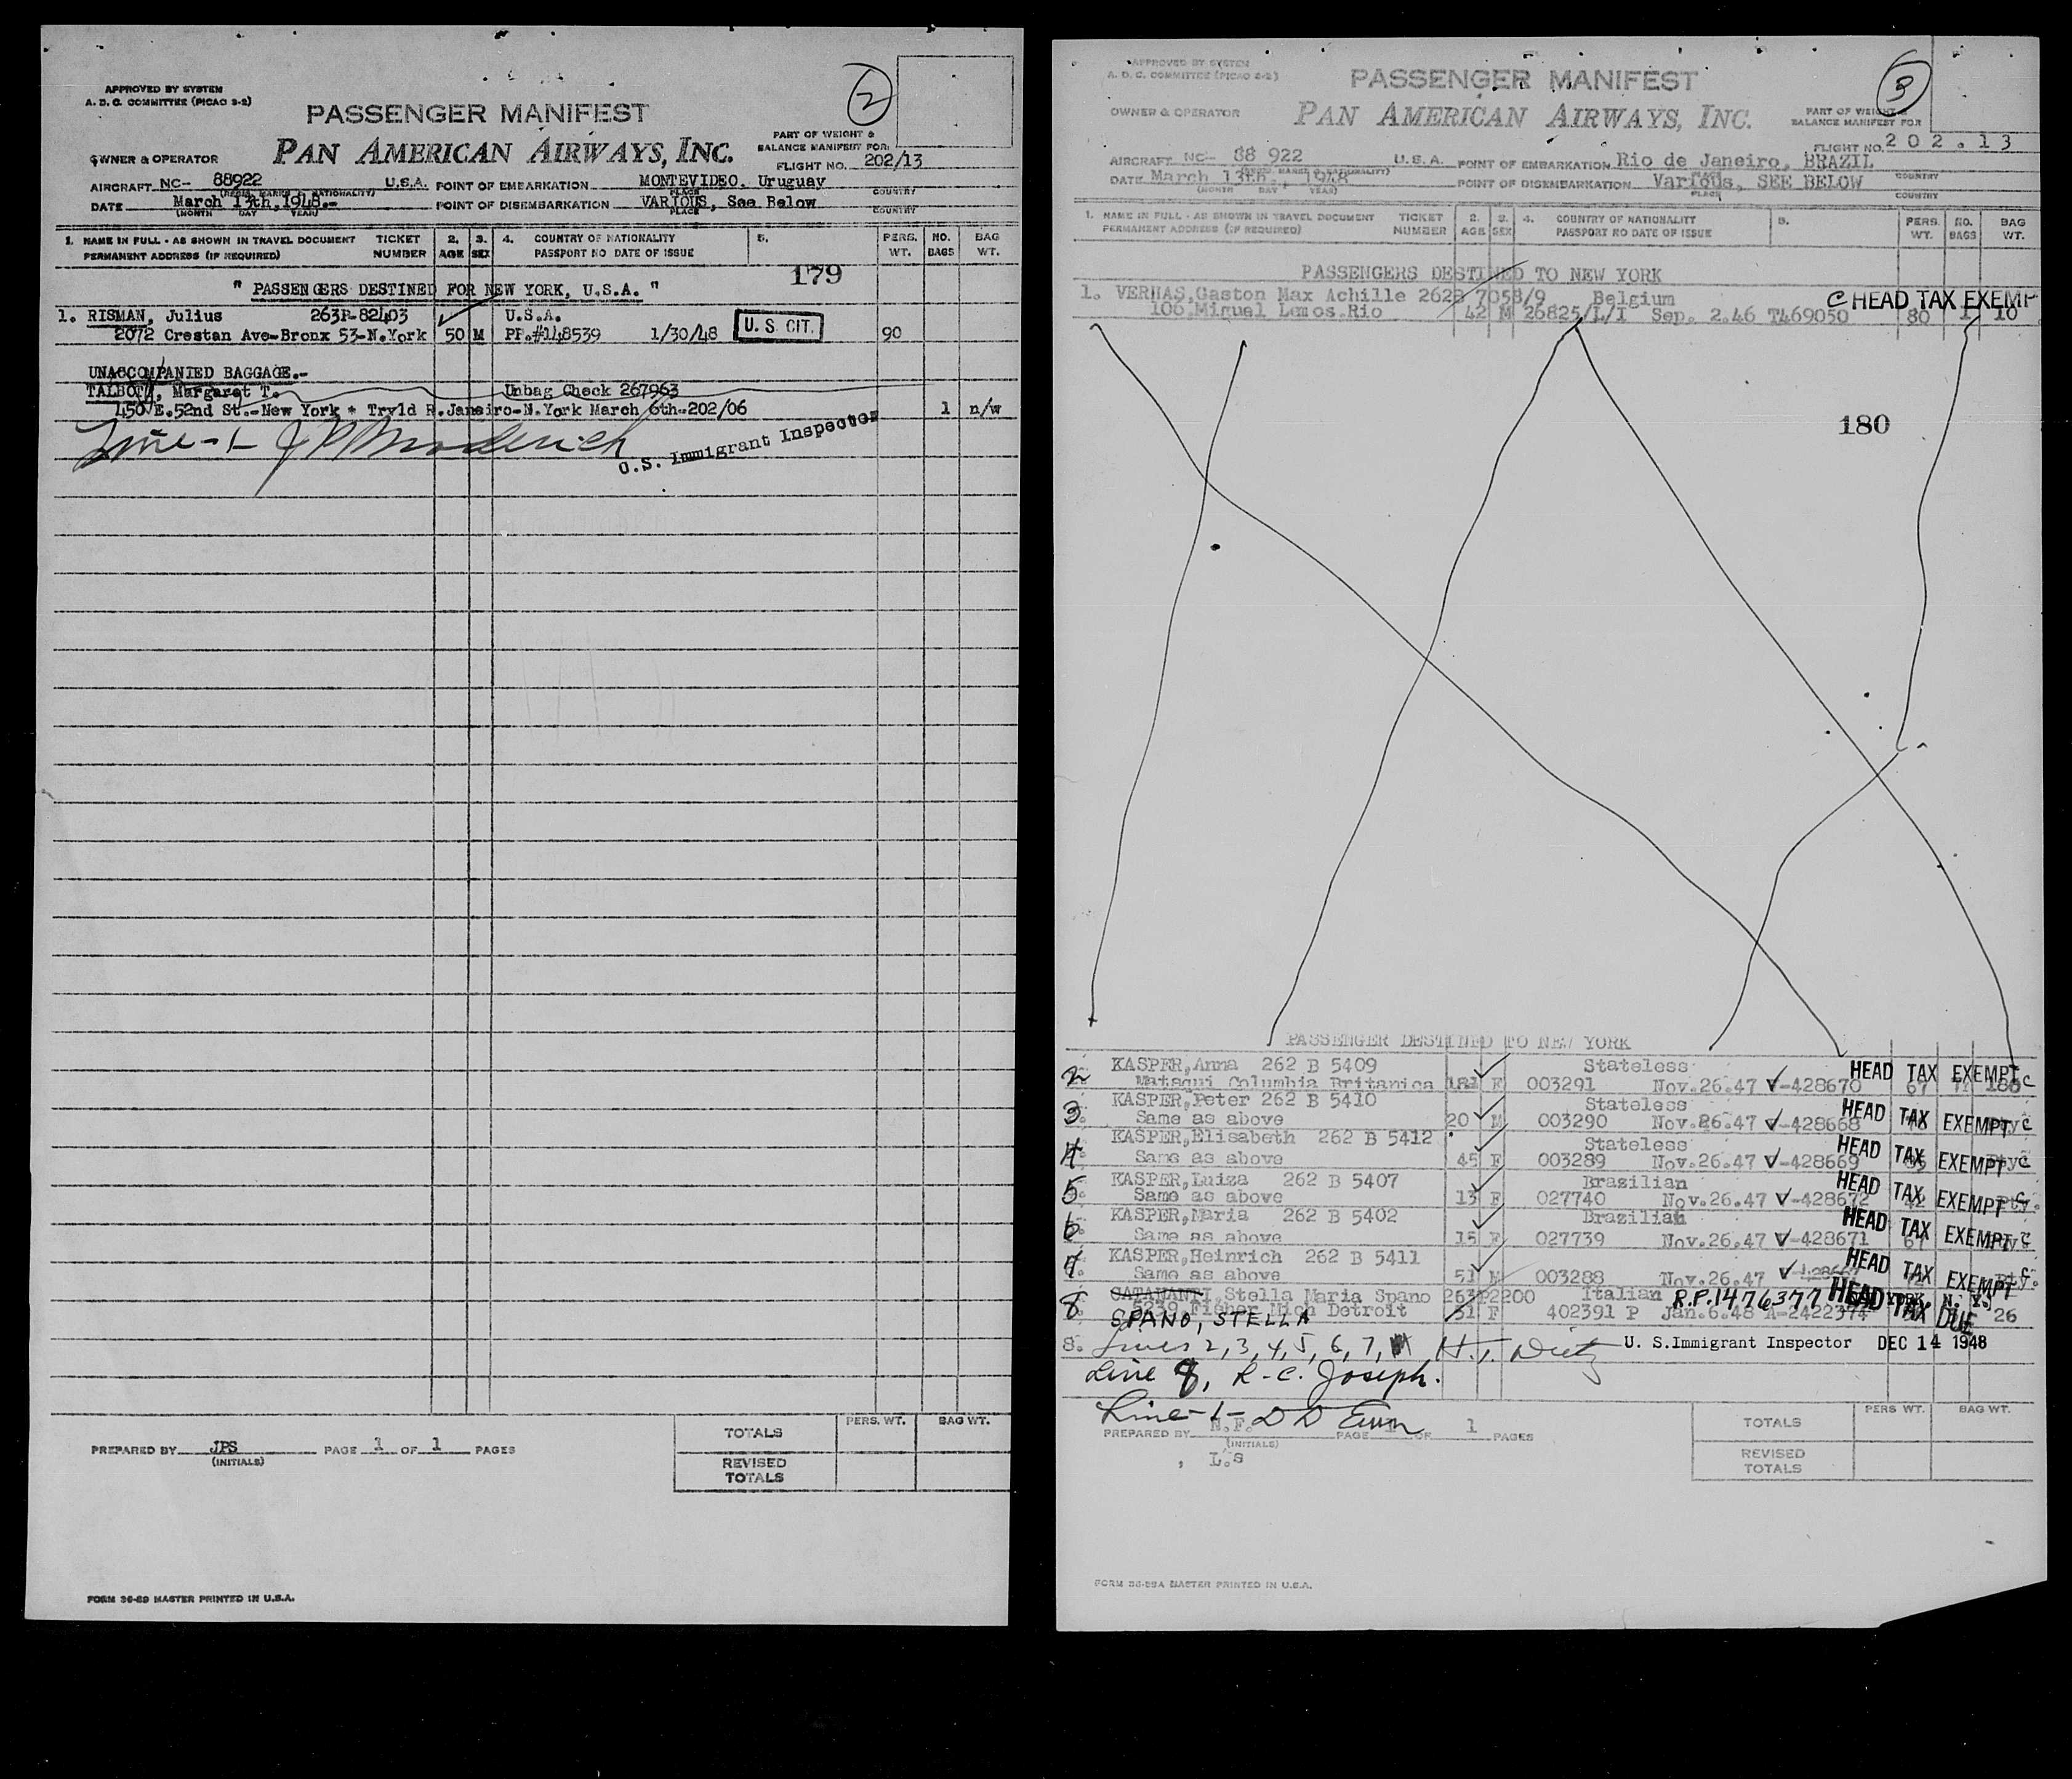 APPROVED BY SYSTEM
A. D. C. COMMITTEE (PICAO 2-2)
2
PASSENGER MANIFEST
PAN AMERICAN AIRWAYS, INC.
PART OF WEIGHT &
BALANCE MANIFEST FOR:
OWNER & OPERATOR
FLIGHT NO. 202/13
AIRCRAFT NC- 88922 U.S.A. POINT OF EMBARKATION MONTEVIDEO, Uruguay
(REGIS. MARKS & NATIONALITY) PLACE COUNTRY
DATE March 13th, 1948.- POINT OF DISEMBARKATION VARIOUS, See Below
(MONTH DAY YEAR) PLACE COUNTRY
1. NAME IN FULL - AS SHOWN IN TRAVEL DOCUMENT TICKET 2. 3. 4. COUNTRY OF NATIONALITY 5. PERS. NO. BAG
PERMANENT ADDRESS (IF REQUIRED) NUMBER AGE SEX PASSPORT NO DATE OF ISSUE WT. BAGS WT.
179
" PASSENGERS DESTINED FOR NEW YORK, U.S.A. "
1. RISMAN, Julius 263P-82403 U.S.A.
2072 Crestan Ave-Bronx 53-N.York 50 M PP.#148539 1/30/48 U. S. CIT. 90
UNACCOMPANIED BAGGAGE.-
TALBOTT, Margaret T. Unbag Check 267963
450 E.52nd St.-New York * Tryld R.Janeiro-N.York March 6th-202/06 1 n/w
Line - 1- J P Broderick
U.S. Immigrant Inspector
TOTALS PERS. WT. BAG WT.
PREPARED BY JPS PAGE 1 OF 1 PAGES
(INITIALS)
REVISED
TOTALS
FORM 36-89 MASTER PRINTED IN U.S.A.
APPROVED BY SYSTEM
A. D. C. COMMITTEE (PICAO 2-2)
3
PASSENGER MANIFEST
OWNER & OPERATOR PAN AMERICAN AIRWAYS, INC.
PART OF WEIGHT
BALANCE MANIFEST FOR
FLIGHT NO. 202.13
AIRCRAFT NC- 88 922 U.S.A. POINT OF EMBARKATION Rio de Janeiro, BRAZIL
DATE March 13th., 1948 POINT OF DISEMBARKATION Various, SEE BELOW
(MONTH DAY YEAR) PLACE COUNTRY
1. NAME IN FULL - AS SHOWN IN TRAVEL DOCUMENT TICKET 2. 3. 4. COUNTRY OF NATIONALITY 5. PERS. NO. BAG
PERMANENT ADDRESS (IF REQUIRED) NUMBER AGE SEX PASSPORT NO DATE OF ISSUE WT. BAGS WT.
PASSENGERS DESTINED TO NEW YORK
1. VERHAS,Gaston Max Achille 262B 7058/9 Belgium C HEAD TAX EXEMP
106.Miguel Lemos.Rio 42 M 26825/L/I Sep. 2.46 T469050 80 1 10
180
PASSENGER DESTINED TO NEW YORK
2 KASPER,Anna 262 B 5409 Stateless HEAD TAX EXEMPT C
Matsqui Columbia Britanica F 003291 Nov.26.47 V-428670 67
3 KASPER,Peter 262 B 5410 Stateless HEAD TAX EXEMPT C
Same as above 20 M 003290 Nov.26.47 V-428668
4 KASPER,Elisabeth 262 B 5412 Stateless HEAD TAX EXEMPT C
Same as above 45 F 003289 Nov.26.47 V-428669
5 KASPER,Luiza 262 B 5407 Brazilian HEAD TAX EXEMPT C
Same as above 13 F 027740 Nov.26.47 V-428672
6 KASPER,Maria 262 B 5402 Brazilian HEAD TAX EXEMPT C
Same as above 15 F 027739 Nov.26.47 V-428671 67
7 KASPER,Heinrich 262 B 5411 HEAD TAX EXEMPT C
Same as above 51 M 003288 Nov.26.47
8 Stella Maria Spano 263P2200 Italian R.P.1476377 HEAD TAX DUE
5239.Fisher Mich Detroit 51 F 402391 P Jan.6.48 A-2422374 26
SPANO, STELLA
8. Lines 2, 3, 4, 5, 6, 7, H. J. Dietz U. S.Immigrant Inspector DEC 14 1948
Line 8, R-C. Joseph.
Line-1- D D Ewen
PREPARED BY N.F. PAGE OF 1 PAGES
(INITIALS)
L.S
PERS WT. BAG WT.
TOTALS
REVISED
TOTALS
FORM 36-89A MASTER PRINTED IN U.S.A.